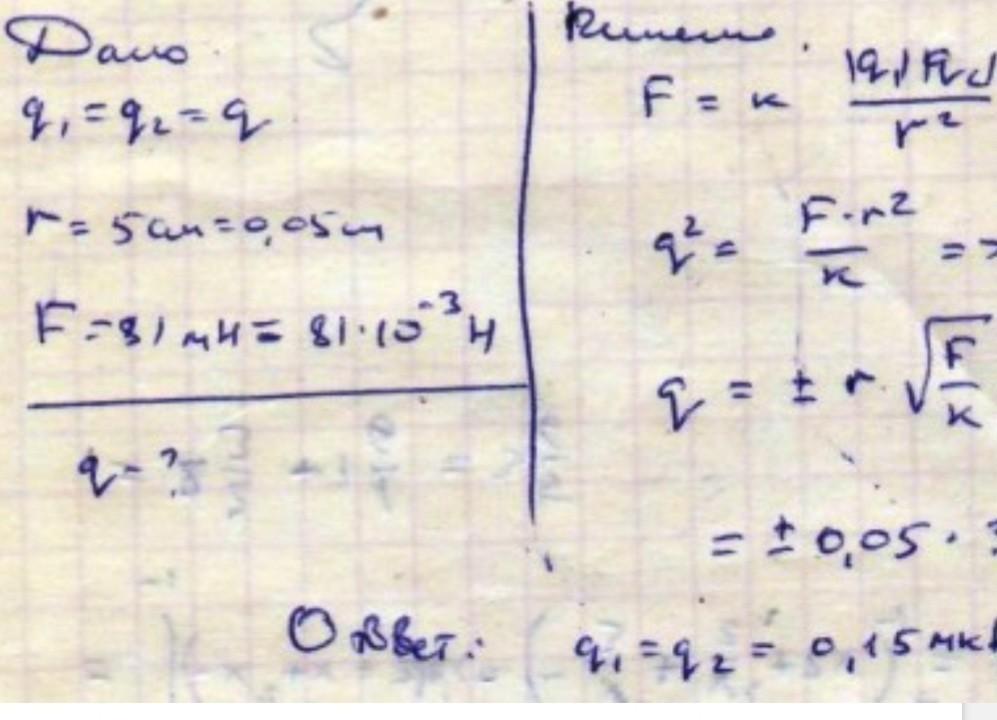 Дано
q₁ = q₂ = q
r = 5 см = 0,05 м
F = 81 мН = 81·10⁻³ Н
q - ?
Решение.
F = к |q₁||q₂| / r²
q² = F·r² / к =>
q = ± r √(F / к)
= ± 0,05 · 3
Ответ: q₁ = q₂ = 0,15 мк